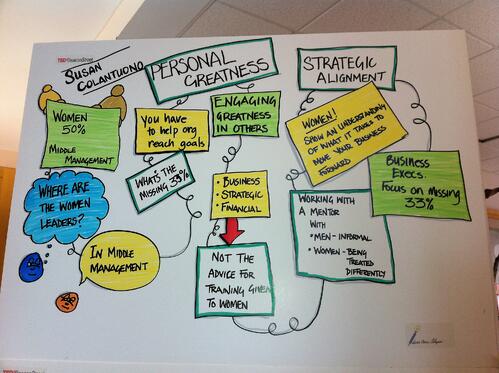 TEDxBeaconStreet
SUSAN
COLANTUONO
PERSONAL
GREATNESS
STRATEGIC
ALIGNMENT
WOMEN
50%
MIDDLE
MANAGEMENT
WHERE ARE
THE WOMEN
LEADERS?
IN MIDDLE
MANAGEMENT
You have
to help org
reach goals
WHAT'S THE
MISSING 33%
ENGAGING
GREATNESS
IN OTHERS
• BUSINESS
• STRATEGIC
• FINANCIAL
NOT THE
ADVICE FOR
TRAINING GIVEN
TO WOMEN
WOMEN!
SHOW AN UNDERSTANDING
OF WHAT IT TAKES TO
MOVE YOUR BUSINESS
FORWARD
BUSINESS
EXECS.
FOCUS ON MISSING
33%
WORKING WITH
A MENTOR
WITH
• MEN-INFORMAL
• WOMEN-BEING
TREATED
DIFFERENTLY